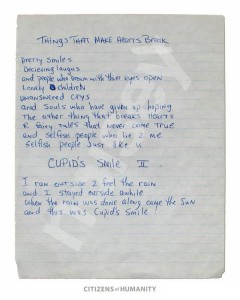 THINGS THAT MAKE HEARTS BREAK
pretty smiles
Deceiving laughs
and people who dream with their eyes open
Lonely children
unanswered crys
and Souls who have given up hoping
The other thing that breaks Hearts
R fairy tales that never come true
and selfish people who lie 2 me
selfish people Just like u
CUPID'S Smile II
I ran outside 2 feel the rain
and I stayed outside awhile
when the rain was done along came the SUN
and this was Cupid's Smile!
CITIZENS OF HUMANITY